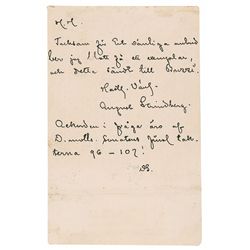 H.H.
Tacksam för Ert vänliga anbud
ber jag: låte få ett exemplar,
och detta sändt till
Högakt. Vänl.
August Strindberg.
Ackorden i fråga äro af
D. molls. Sonatens final tak-
terna 96 – 107!